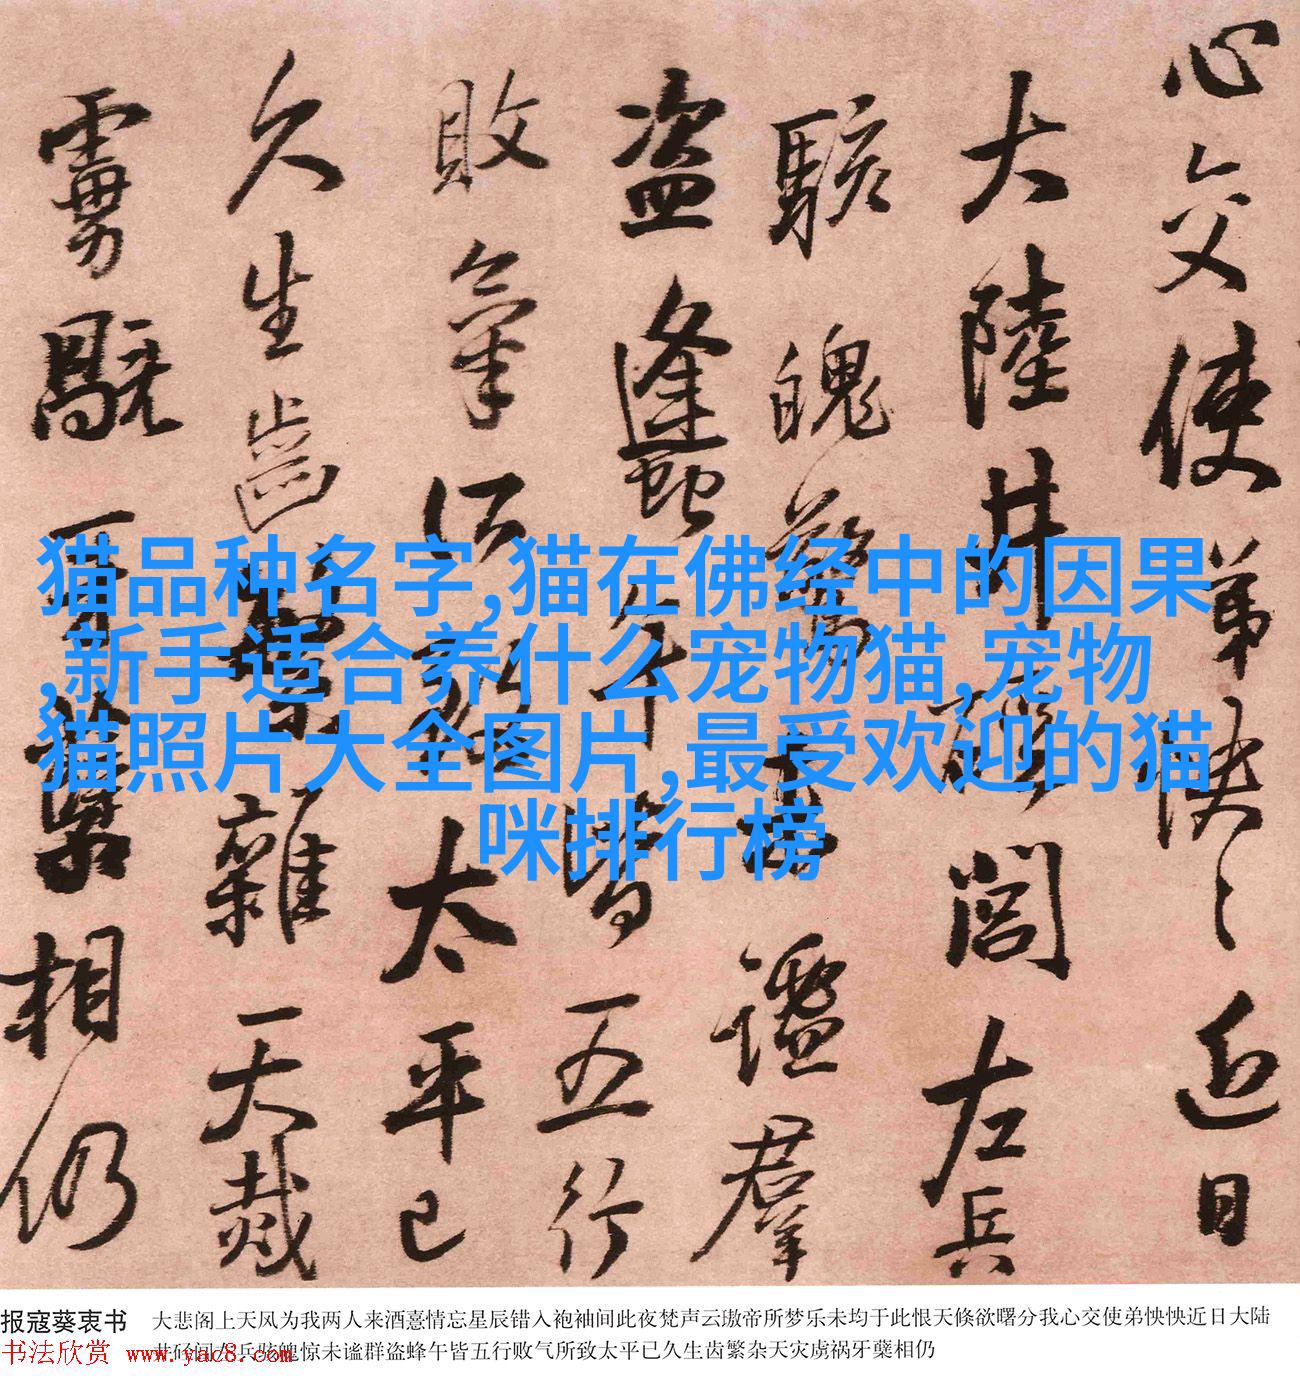 心交使弟怏〻近日
大陸井閤左兵
駭魄驚未謐羣
盗蠭午皆五行
敗氣所致太平已
久生齒繁雜天烖
牙蘖相仍
猫品种名字,猫在佛经中的因果
,新手适合养什么宠物猫,宠物
猫照片大全图片,最受欢迎的猫
咪排行榜
报寇葵衷书 大悲阁上天风为我两人来酒憙情忘星辰错入袍袖间此夜梵声云璈帝所梦乐未均于此恨天倏欲曙分我心交使弟怏怏近日大陆
左兵骇魄惊未谧群盗蜂午皆五行败气所致太平已久生齿繁杂天灾虏祸牙蘖相仍
书法欣赏 www.yac8.com